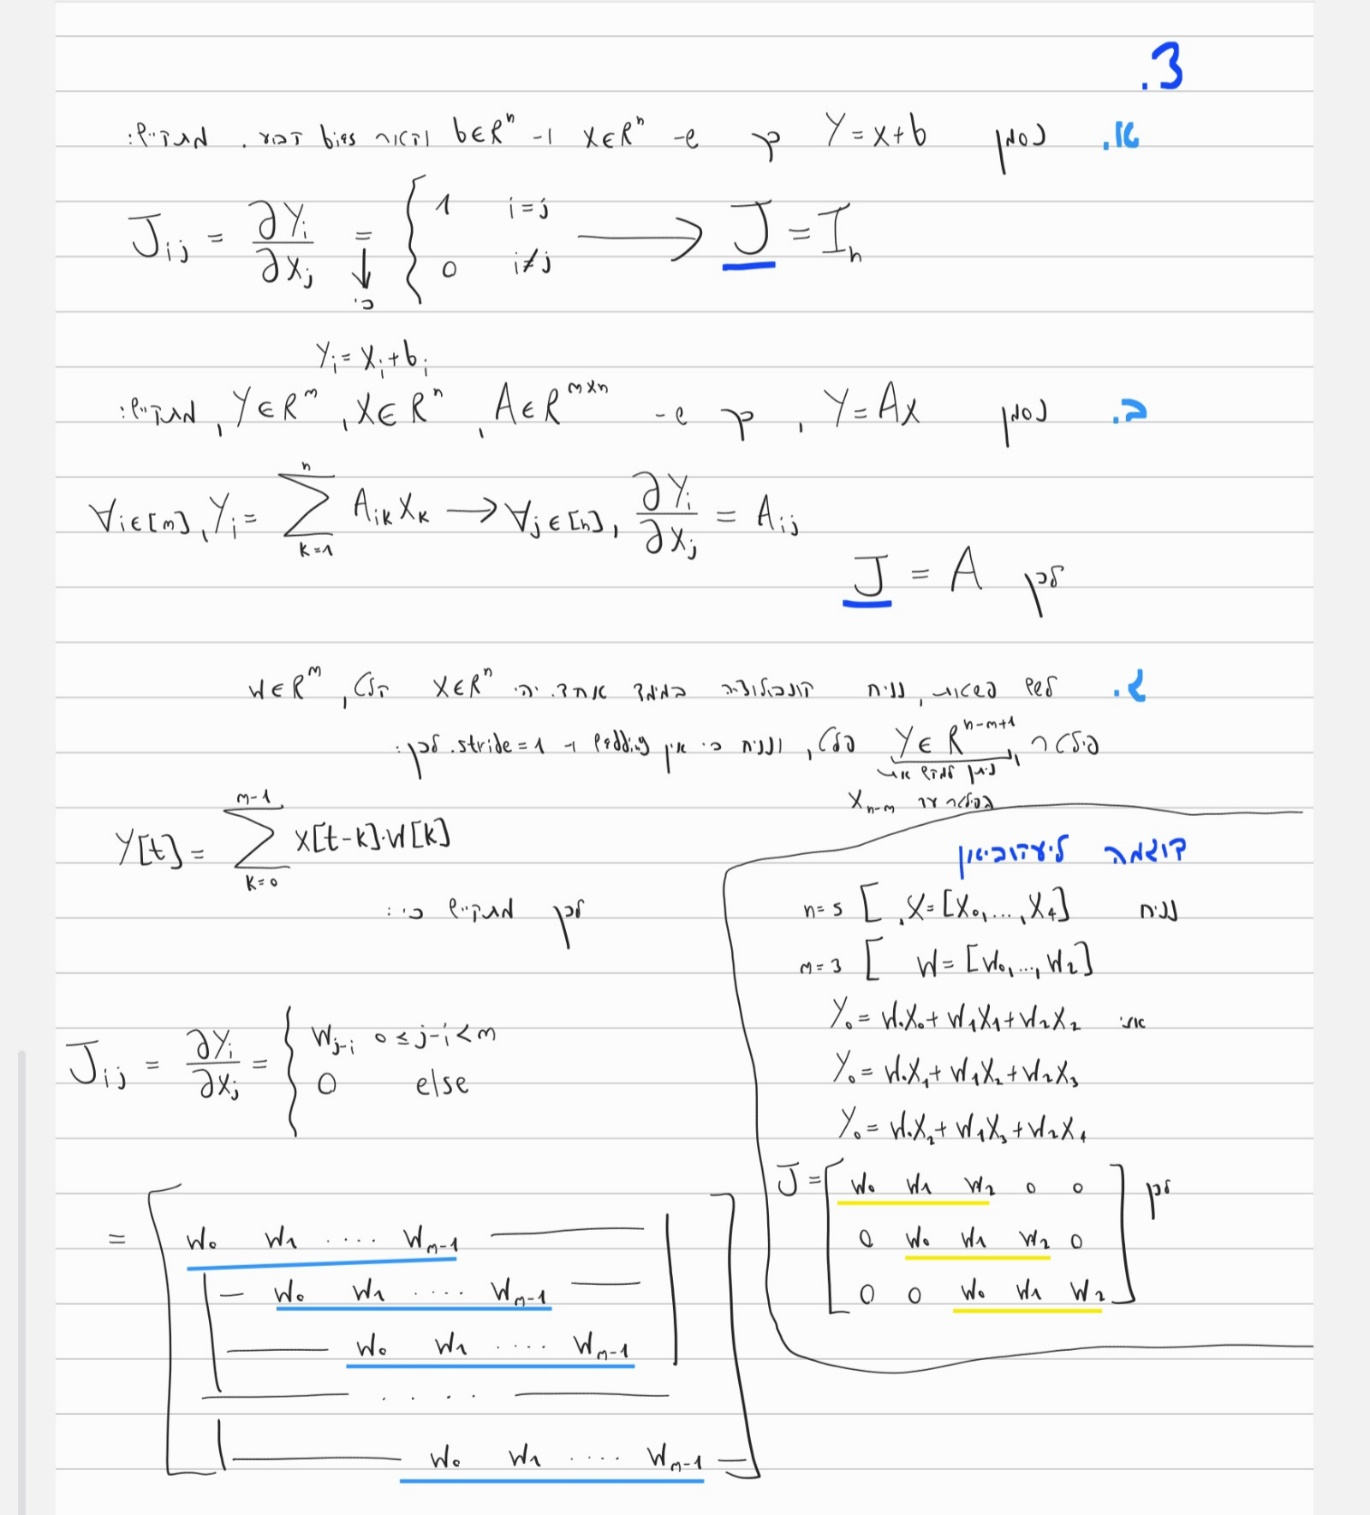 3.
א. נסמן Y=x+b כך ש- x∈Rⁿ ו- b∈Rⁿ וקטור bias דבר. מתקיים:
J_ij = ∂Y_i/∂x_j = { 1 i=j , 0 i≠j → J = I_n
כי
Y_i = x_i + b_i
ב. נסמן Y=Ax, כך ש- A∈R^{m×n}, X∈Rⁿ, Y∈R^m, מתקיים:
∀i∈[m], Y_i = Σ_{k=1}^{n} A_ik X_k → ∀j∈[n], ∂Y_i/∂x_j = A_ij
לכן J = A
ג. לשם פשטות, נניח קונבולוציה במימד אחד. יהי X∈Rⁿ קלט, W∈R^m
Y∈R^{n-m+1} פלט, ונניח כי אין padding ו- stride=1. לכן:
X_{n-m}
Y[t] = Σ_{k=0}^{m-1} X[t-k]·W[k]
לכן מתקיים כי:
J_ij = ∂Y_i/∂x_j = { W_{j-i} 0≤j-i<m , 0 else
= [ W_0 W_1 .... W_{m-1}
W_0 W_1 .... W_{m-1}
W_0 W_1 .... W_{m-1}
. . . .
W_0 W_1 .... W_{m-1} ]
דוגמה ליעקוביאן
נניח X=[X_0,...,X_4] , n=5
W=[W_0,...,W_2] m=3
אזי Y_0 = W_0X_0 + W_1X_1 + W_2X_2
Y_0 = W_0X_1 + W_1X_2 + W_2X_3
Y_0 = W_0X_2 + W_1X_3 + W_2X_4
לכן J = [ W_0 W_1 W_2 0 0
0 W_0 W_1 W_2 0
0 0 W_0 W_1 W_2 ]